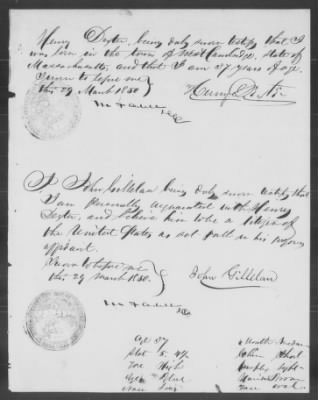 Henry Dexter, being duly sworn certify that I
was born in the town of West Cambridge, State of
Massachusetts, and that I am 37 years of age
Sworn to before me
this 29 March 1850
Henry Dexter
I John Gillelan being duly sworn certify that
I am personally acquainted with Henry
Dexter, and believe him to be a citizen of
the United States as set forth in his
affidavit.
Sworn to before me
this 29 March 1850.
John Gillelan
Age 37
Stat 5.
Face High
Eyes Blue
Nose
Mouth Medium
Chin Short
Comple Light
Hair Brown
Face oval